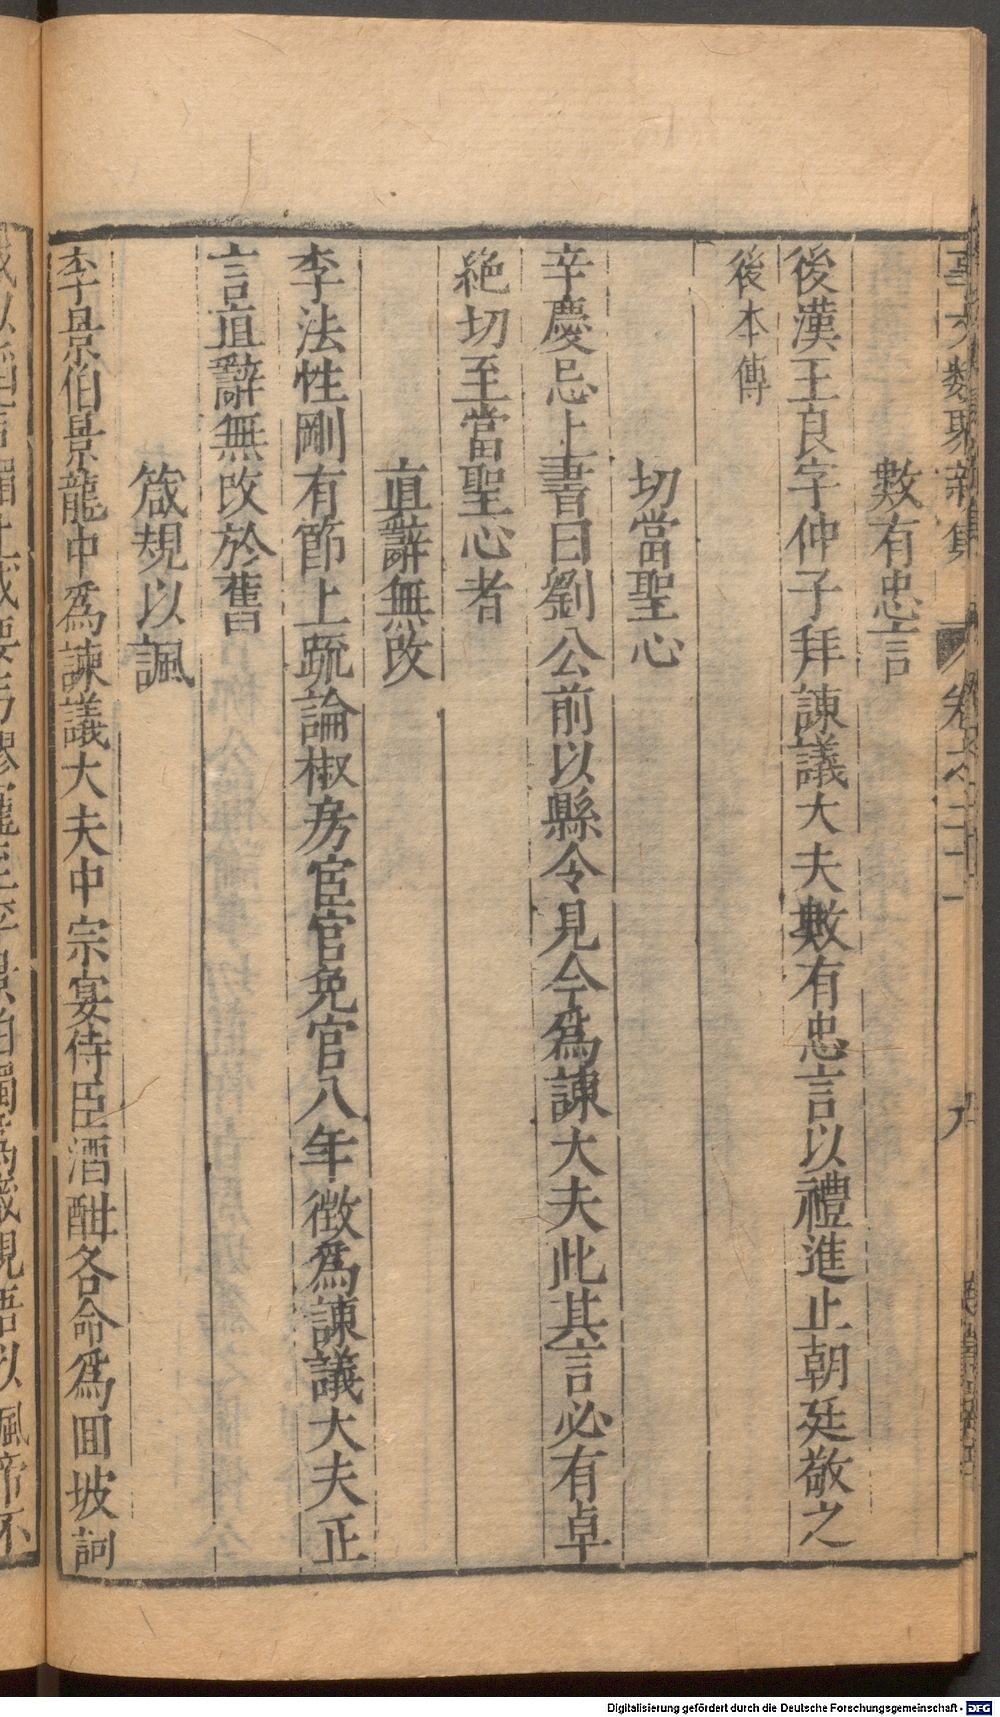 事文類聚新集 卷之二十一 九
數有忠言
後漢王良字仲子拜諫議大夫數有忠言以禮進止朝廷敬之
後本傳
切當聖心
辛慶忌上書曰劉公前以縣令見今爲諫大夫此其言必有卓
絶切至當聖心者
直辭無改
李法性剛有節上疏論椒房宦官免官八年徵爲諫議大夫正
言直辭無改於舊
箴規以諷
李景伯景龍中爲諫議大夫中宗宴侍臣酒酣各命爲囬坡詞
Digitalisierung gefördert durch die Deutsche Forschungsgemeinschaft - DFG